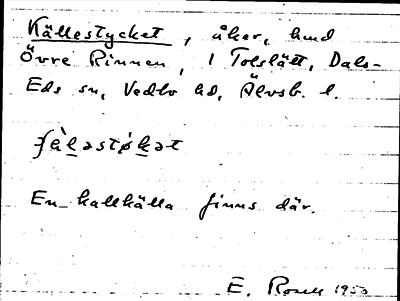 Källestycket, åker, hmd
Övre Rinnen, i Tolslätt, Dals-
Eds sn, Vedbo hd, Älvsb. l.
En kallkälla finns där.
E. Rosell 1950